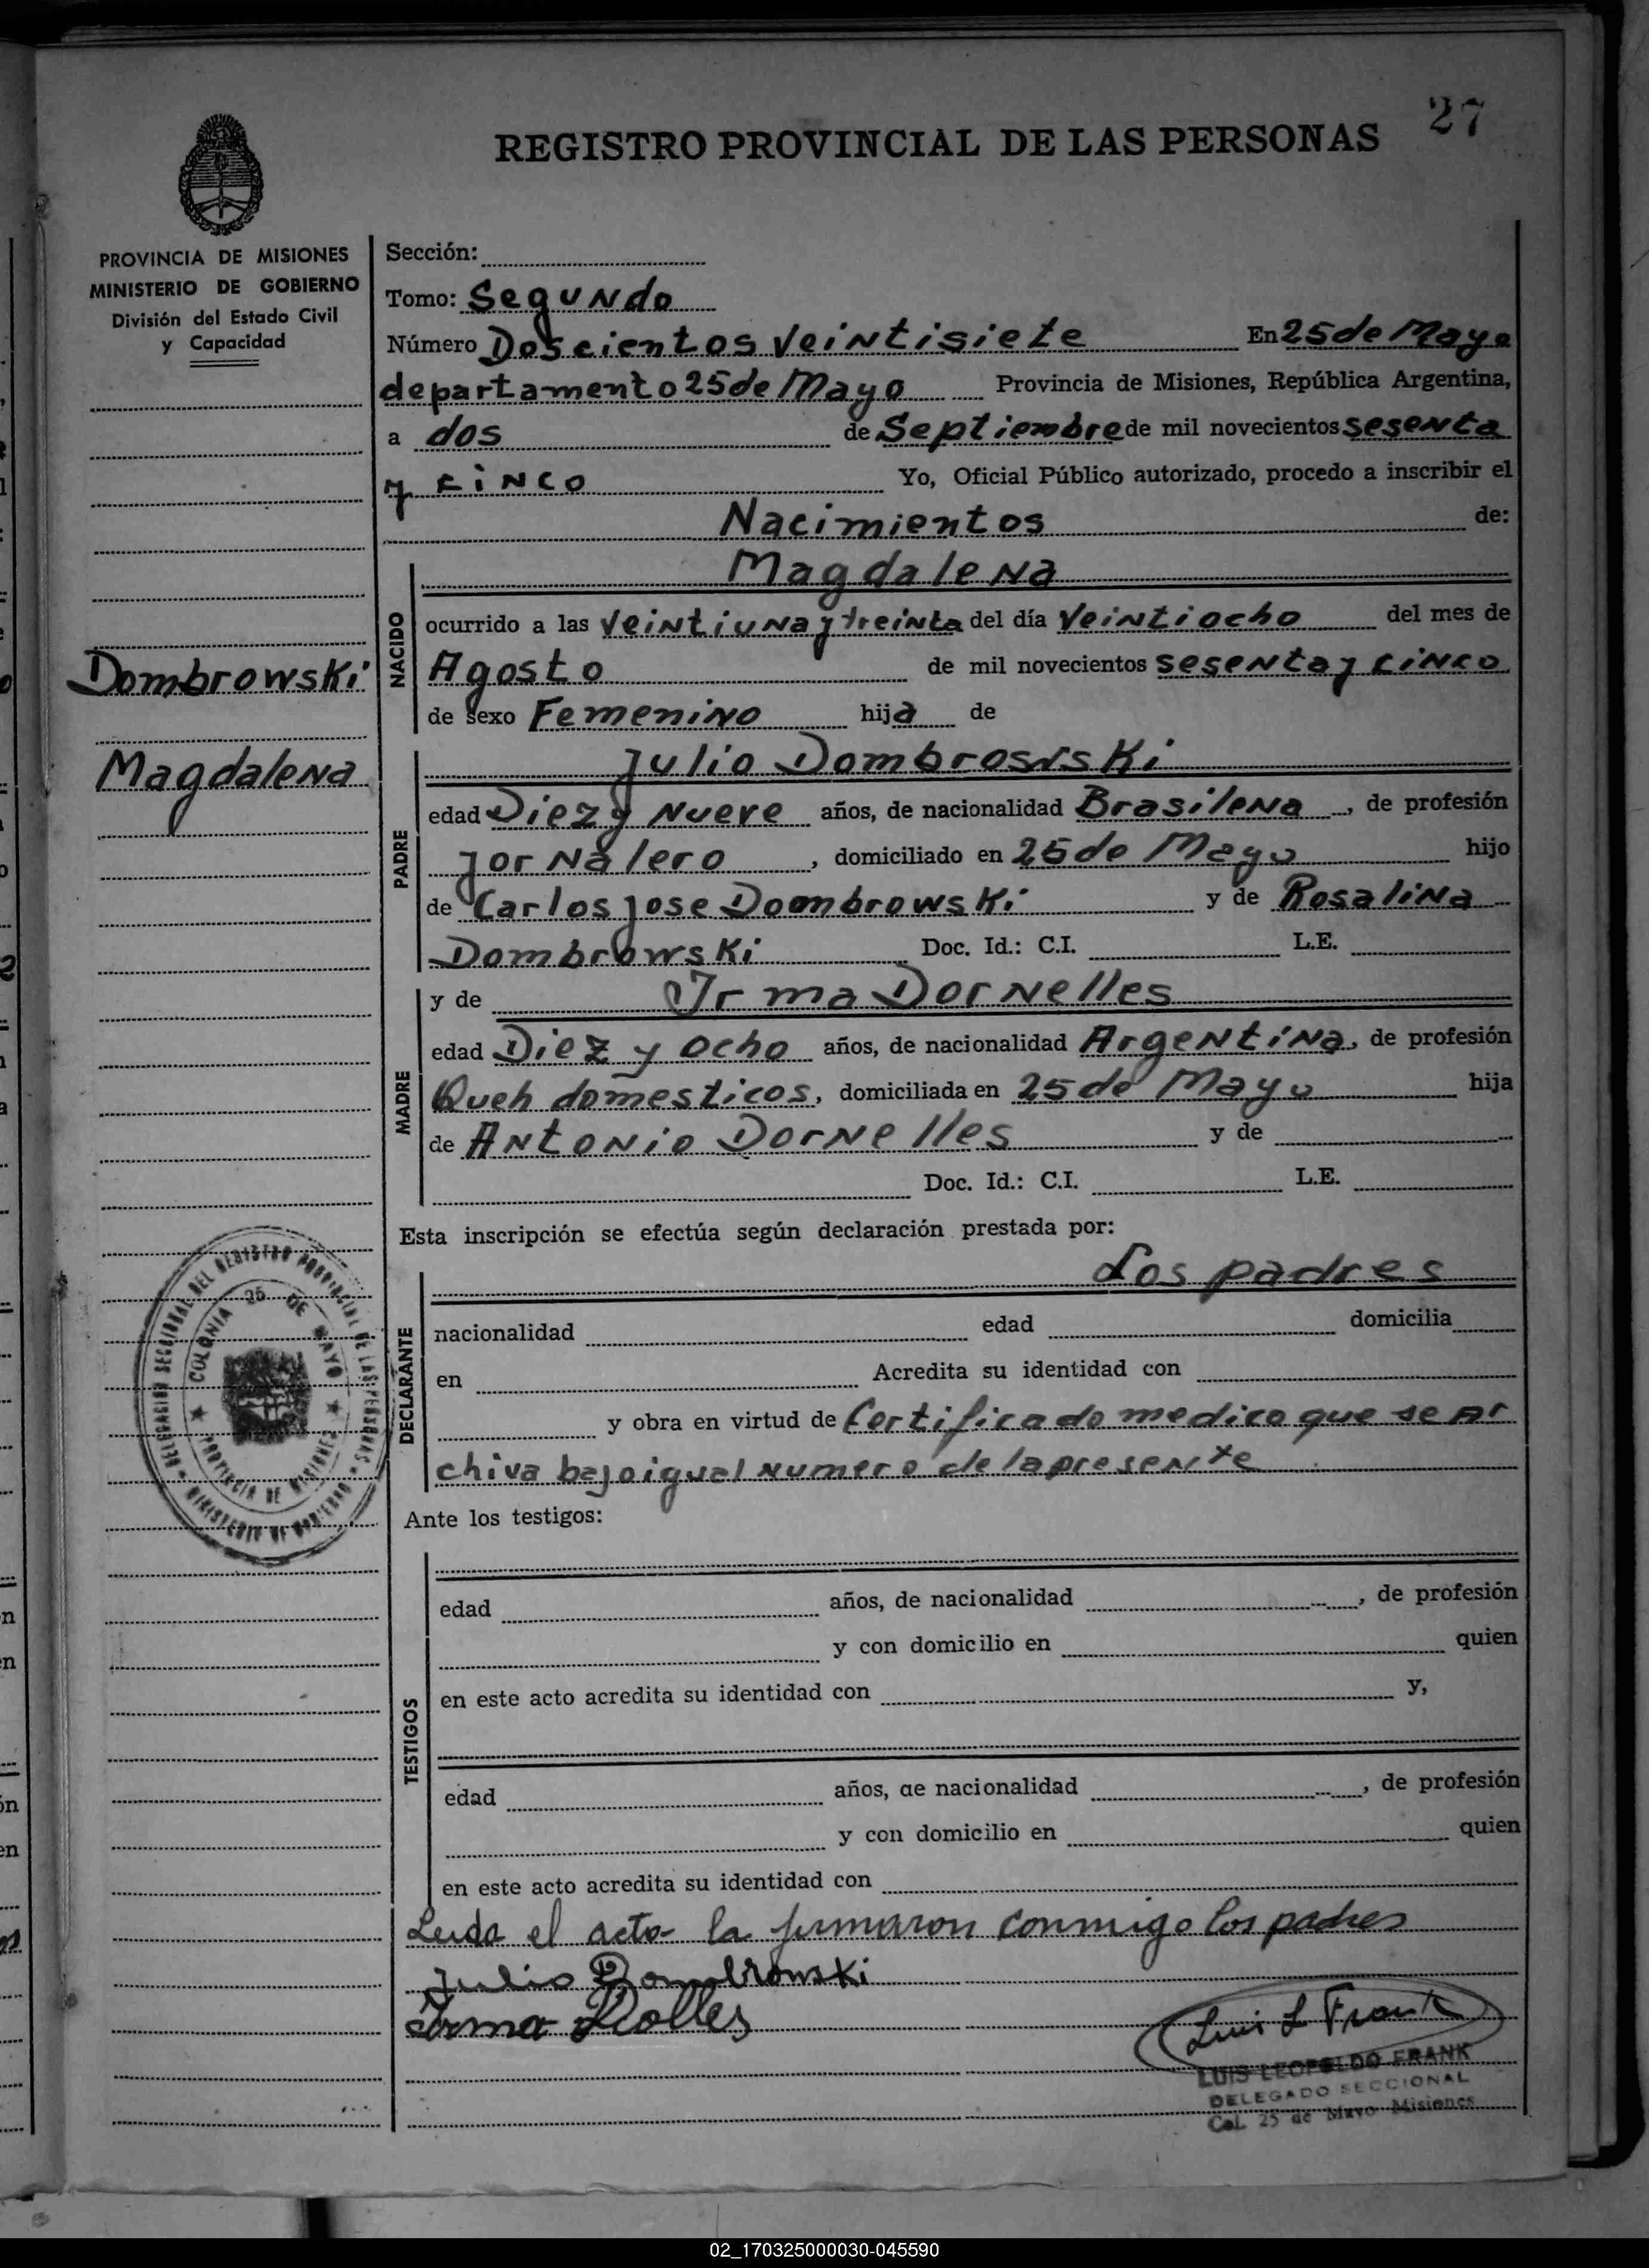 27
REGISTRO PROVINCIAL DE LAS PERSONAS
PROVINCIA DE MISIONES
MINISTERIO DE GOBIERNO
División del Estado Civil
y Capacidad
Dombrowski
Magdalena
Sección:
Tomo: Segundo
Número Doscientos Veintisiete En 25 de Mayo
departamento 25 de Mayo Provincia de Misiones, República Argentina,
a dos de Septiembre de mil novecientos sesenta
y cinco Yo, Oficial Público autorizado, procedo a inscribir el
Nacimientos de:
NACIDO
Magdalena
ocurrido a las veintiuna y treinta del día Veintiocho del mes de
Agosto de mil novecientos sesenta y cinco
de sexo Femenino hija de
PADRE
Julio Dombrosvski
edad Diez y Nueve años, de nacionalidad Brasilena, de profesión
jornalero, domiciliado en 25 de Mayo hijo
de Carlos jose Dombrowski y de Rosalina
Dombrowski Doc. Id.: C.I. L.E.
MADRE
y de Irma Dornelles
edad Diez y ocho años, de nacionalidad Argentina, de profesión
Queh domesticos, domiciliada en 25 de Mayo hija
de Antonio Dornelles y de
Doc. Id.: C.I. L.E.
Esta inscripción se efectúa según declaración prestada por:
DECLARANTE
Los padres
nacionalidad edad domicilia
en Acredita su identidad con
y obra en virtud de Certificado medico que se ar
chiva bajo igual numero de la presente
DELEGACION SECCIONAL DEL REGISTRO PROVINCIAL DE LAS PERSONAS
MINISTERIO DE GOBIERNO
COLONIA 25 DE MAYO
PROVINCIA DE MISIONES
Ante los testigos:
TESTIGOS
edad años, de nacionalidad , de profesión
y con domicilio en quien
en este acto acredita su identidad con y,
edad años, de nacionalidad , de profesión
y con domicilio en quien
en este acto acredita su identidad con
Leida el acto la firmaron conmigo los padres
Julio Dombrowski
Irma
Luis L Frank
LUIS LEOPOLDO FRANK
DELEGADO SECCIONAL
Col. 25 de Mayo Misiones
02_170325000030-045590